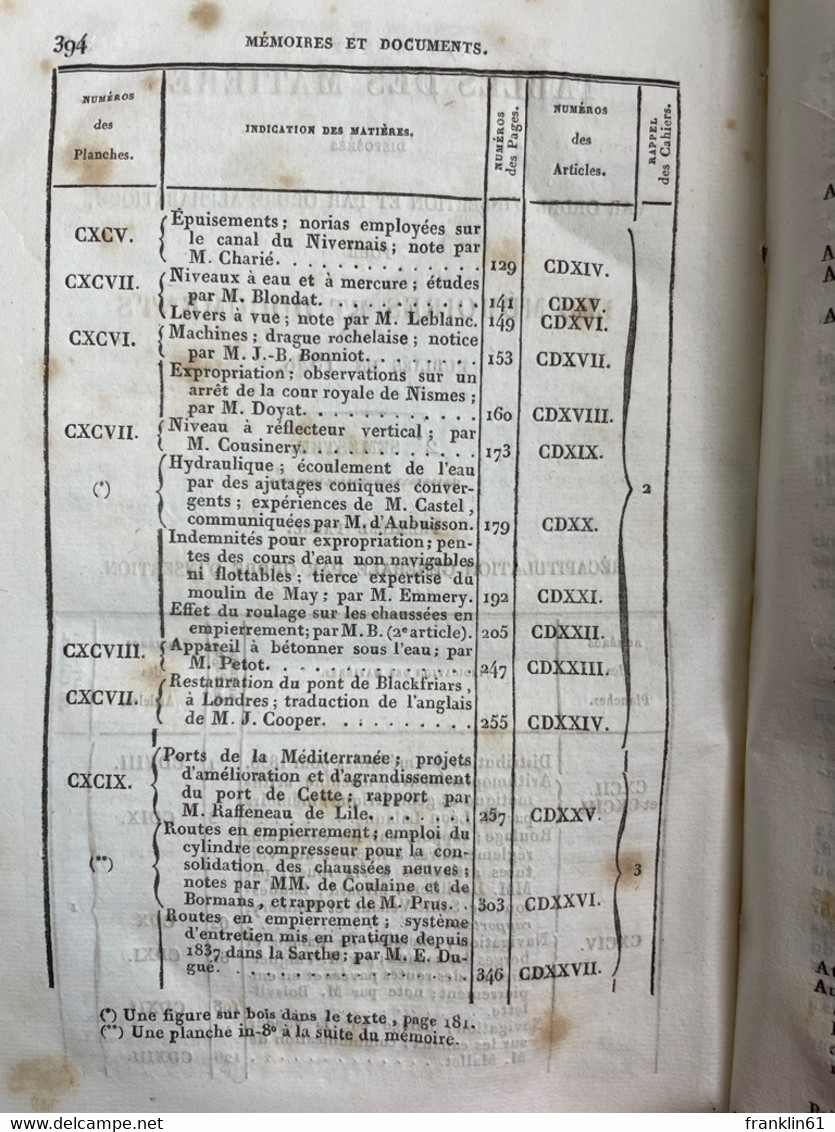 394 MÉMOIRES ET DOCUMENTS.
NUMÉROS des Planches.
INDICATION DES MATIÈRES.
NUMÉROS des Pages.
NUMÉROS des Articles.
RAPPEL des Cahiers.
Épuisements ; norias employées sur
CXCV. le canal du Nivernais ; note par
M. Charié. . . . . . . . . . . . . . 129 CDXIV.
CXCVII. Niveaux à eau et à mercure ; études
par M. Blondat. . . . . . . . . . 141 CDXV.
Levers à vue ; note par M. Leblanc. 149 CDXVI.
CXCVI. Machines ; drague rochelaise ; notice
par M. J.-B. Bonniot. . . . . . . . 153 CDXVII.
Expropriation ; observations sur un
arrêt de la cour royale de Nismes ;
par M. Doyat. . . . . . . . . . . . 160 CDXVIII.
CXCVII. Niveau à réflecteur vertical ; par
M. Cousinery. . . . . . . . . . . . 173 CDXIX.
Hydraulique ; écoulement de l'eau
(*) par des ajutages coniques conver- 2
gents ; expériences de M. Castel,
communiquées par M. d'Aubuisson. 179 CDXX.
Indemnités pour expropriation ; pen-
tes des cours d'eau non navigables
ni flottables ; tierce expertise du
moulin de May ; par M. Emmery. 192 CDXXI.
Effet du roulage sur les chaussées en
empierrement; par M. B. (2e article). 205 CDXXII.
CXCVIII. Appareil à bétonner sous l'eau ; par
M. Petot. . . . . . . . . . . . . . 247 CDXXIII.
Restauration du pont de Blackfriars,
CXCVII. à Londres ; traduction de l'anglais
de M. J. Cooper. . . . . . . . . . 255 CDXXIV.
Ports de la Méditerranée ; projets
CXCIX. d'amélioration et d'agrandissement
du port de Cette ; rapport par
M. Raffeneau de Lile. . . . . . . 257 CDXXV.
Routes en empierrement ; emploi du
cylindre compresseur pour la con-
(**) solidation des chaussées neuves ; 3
notes par MM. de Coulaine et de
Bormans, et rapport de M. Prus. . 303 CDXXVI.
Routes en empierrement ; système
d'entretien mis en pratique depuis
1837 dans la Sarthe ; par M. E. Du-
gué. . . . . . . . . . . . . . . . 346 CDXXVII.
(*) Une figure sur bois dans le texte, page 181.
(**) Une planche in-8° à la suite du mémoire.
franklin61